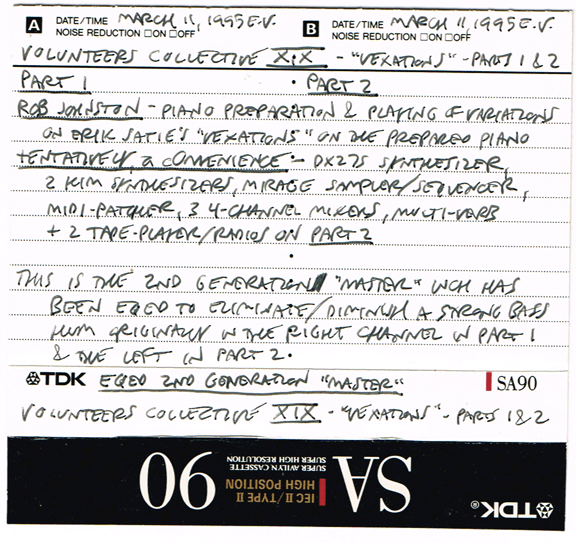 A DATE/TIME MARCH 11, 1995 E.V. B DATE/TIME MARCH 11, 1995 E.V.
NOISE REDUCTION ☐ON ☐OFF NOISE REDUCTION ☐ON ☐OFF
VOLUNTEERS COLLECTIVE XIX - "VEXATIONS" - PARTS 1 & 2
PART 1 · PART 2
ROB JOHNSTON - PIANO PREPARATION & PLAYING OF VARIATIONS
ON ERIK SATIE'S "VEXATIONS" ON THE PREPARED PIANO
tENTATIVELY, a cONVENIENCE - DX27S SYNTHESIZER,
2 KIM SYNTHESIZERS, MIRAGE SAMPLER/SEQUENCER,
MIDI-PATCHER, 3 4-CHANNEL MIXERS, MULTI-VERB
+ 2 TAPE-PLAYER/RADIOS ON PART 2
·
THIS IS THE 2ND GENERATION "MASTER" WCH HAS
BEEN EQED TO ELIMINATE/DIMINISH A STRONG BASS
HUM ORIGINALLY IN THE RIGHT CHANNEL IN PART 1
& THE LEFT IN PART 2.
TDK EQED 2ND GENERATION "MASTER" SA90
VOLUNTEERS COLLECTIVE XIX - "VEXATIONS" - PARTS 1 & 2
TDK®
SA
IEC II / TYPE II
HIGH POSITION
SUPER AVILYN CASSETTE
SUPER HIGH RESOLUTION
90